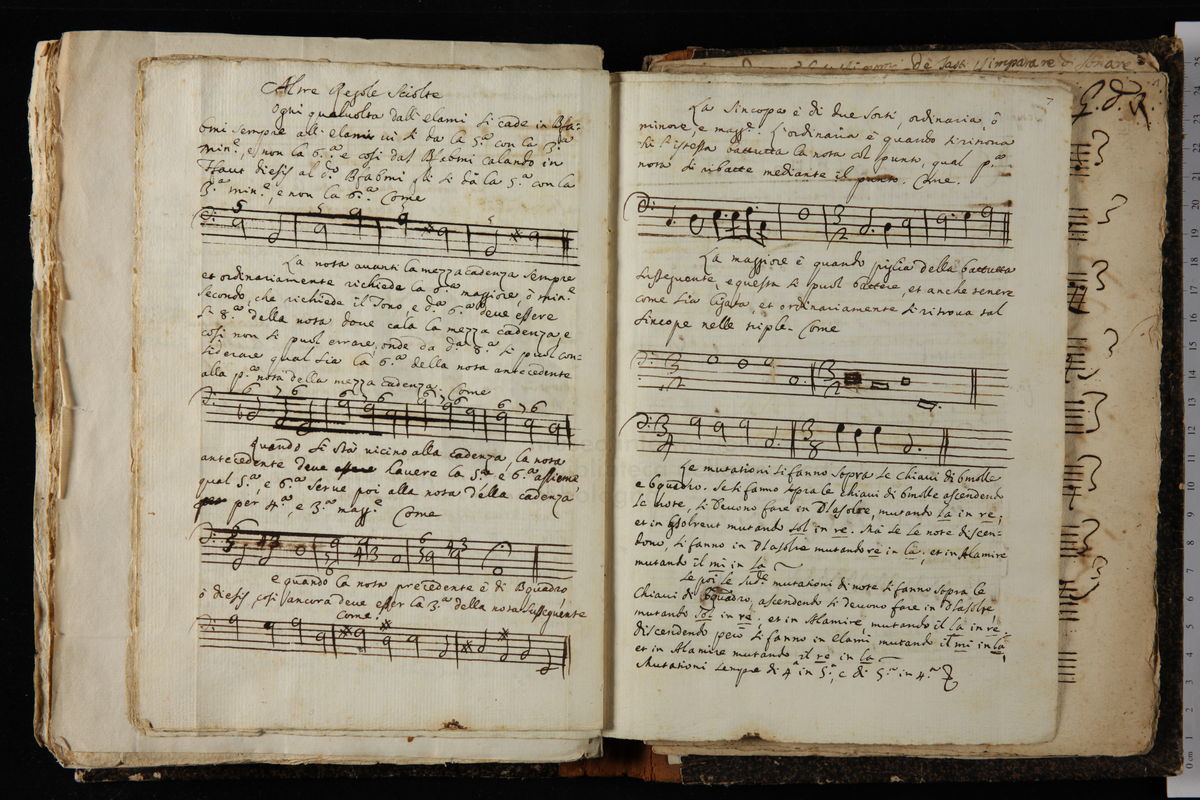 Altre Regole Sciolte
Ogni qualvolta dall' elami si cade in Bfa-
bmi sempre all' elami vi si da la 5.ª con la 3.ª
min.e, e non la 6.ª e così dal Bfabmi calando in
Ffaut diesis al d.º Bfabmi gli si dà la 5.ª con la
3.ª min.e, e non la 6.ª Come
La nota avanti la mezza cadenza sempre
et ordinariamente richiede la 6.ª maggiore, ò min.e
secondo, che richiede il Tono, e d.ª 6.ª deve essere
la 8.ª della nota dove cala la mezza cadenza, e
così non si può errare, onde da d.ª 8.ª si può con-
siderare qual sia la 6.ª della nota antecedente
alla p.ª nota della mezza cadenza. Come
Quando si stà vicino alla cadenza, la nota
antecedente deve havere la 5.ª e 6.ª assieme,
qual 5.ª, e 6.ª serve poi alla nota della cadenza
per 4.ª e 3.ª magg.e Come
e quando la nota precedente è di Bquadro,
ò diesis, così ancora deve esser la 3.ª della nota susseguente
Come.
7
La Sincopa è di due sorti, ordinaria, ò
minore, e magg.e L'ordinaria è quando si ritrova
nell' istessa battutta la nota col punto, qual p.ª
nota si ribatte mediante il punto. Come.
La maggiore è quando piglia della battutta
susseguente, e questa si può battere, et anche tenere
come sia ligata, et ordinariamente si ritrova tal
sincope nelle triple. Come
Le mutationi si fanno sopra le chiavi di bmolle
e bquadro. Se si fanno sopra le chiavi di bmolle ascendendo
le note, si devono fare in Dlasolre, mutando la in re;
et in Gsolreut mutando sol in re. Mà se le note discen-
dono, si fanno in Dlasolre mutando re in la, et in Alamire
mutando il mi in la
Se poi le sud.e mutationi di note si fanno sopra le
chiavi di Bquadro, ascendendo si devono fare in Dlasolre
mutando sol in re, et in Alamire, mutando il la in re.
discendendo però si fanno in elami mutando il mi in la,
et in Alamire mutando il re in la
Mutationi sempre di 4.ª in 5.ª, e di 5.ª in 4.ª